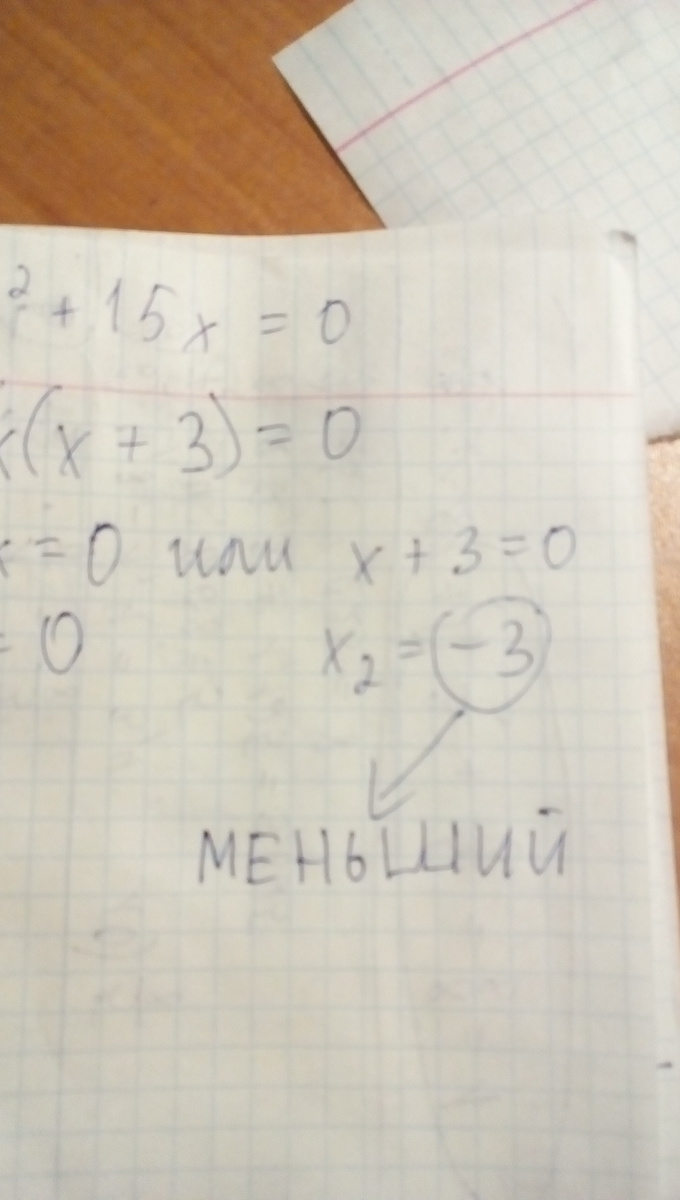 ² + 15x = 0
x(x + 3) = 0
x = 0 или x + 3 = 0
= 0 x₂ = -3
МЕНЬШИЙ